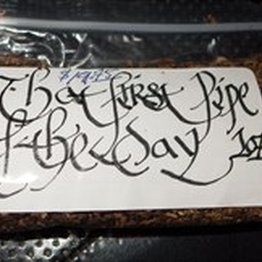 That first Pipe
of the day